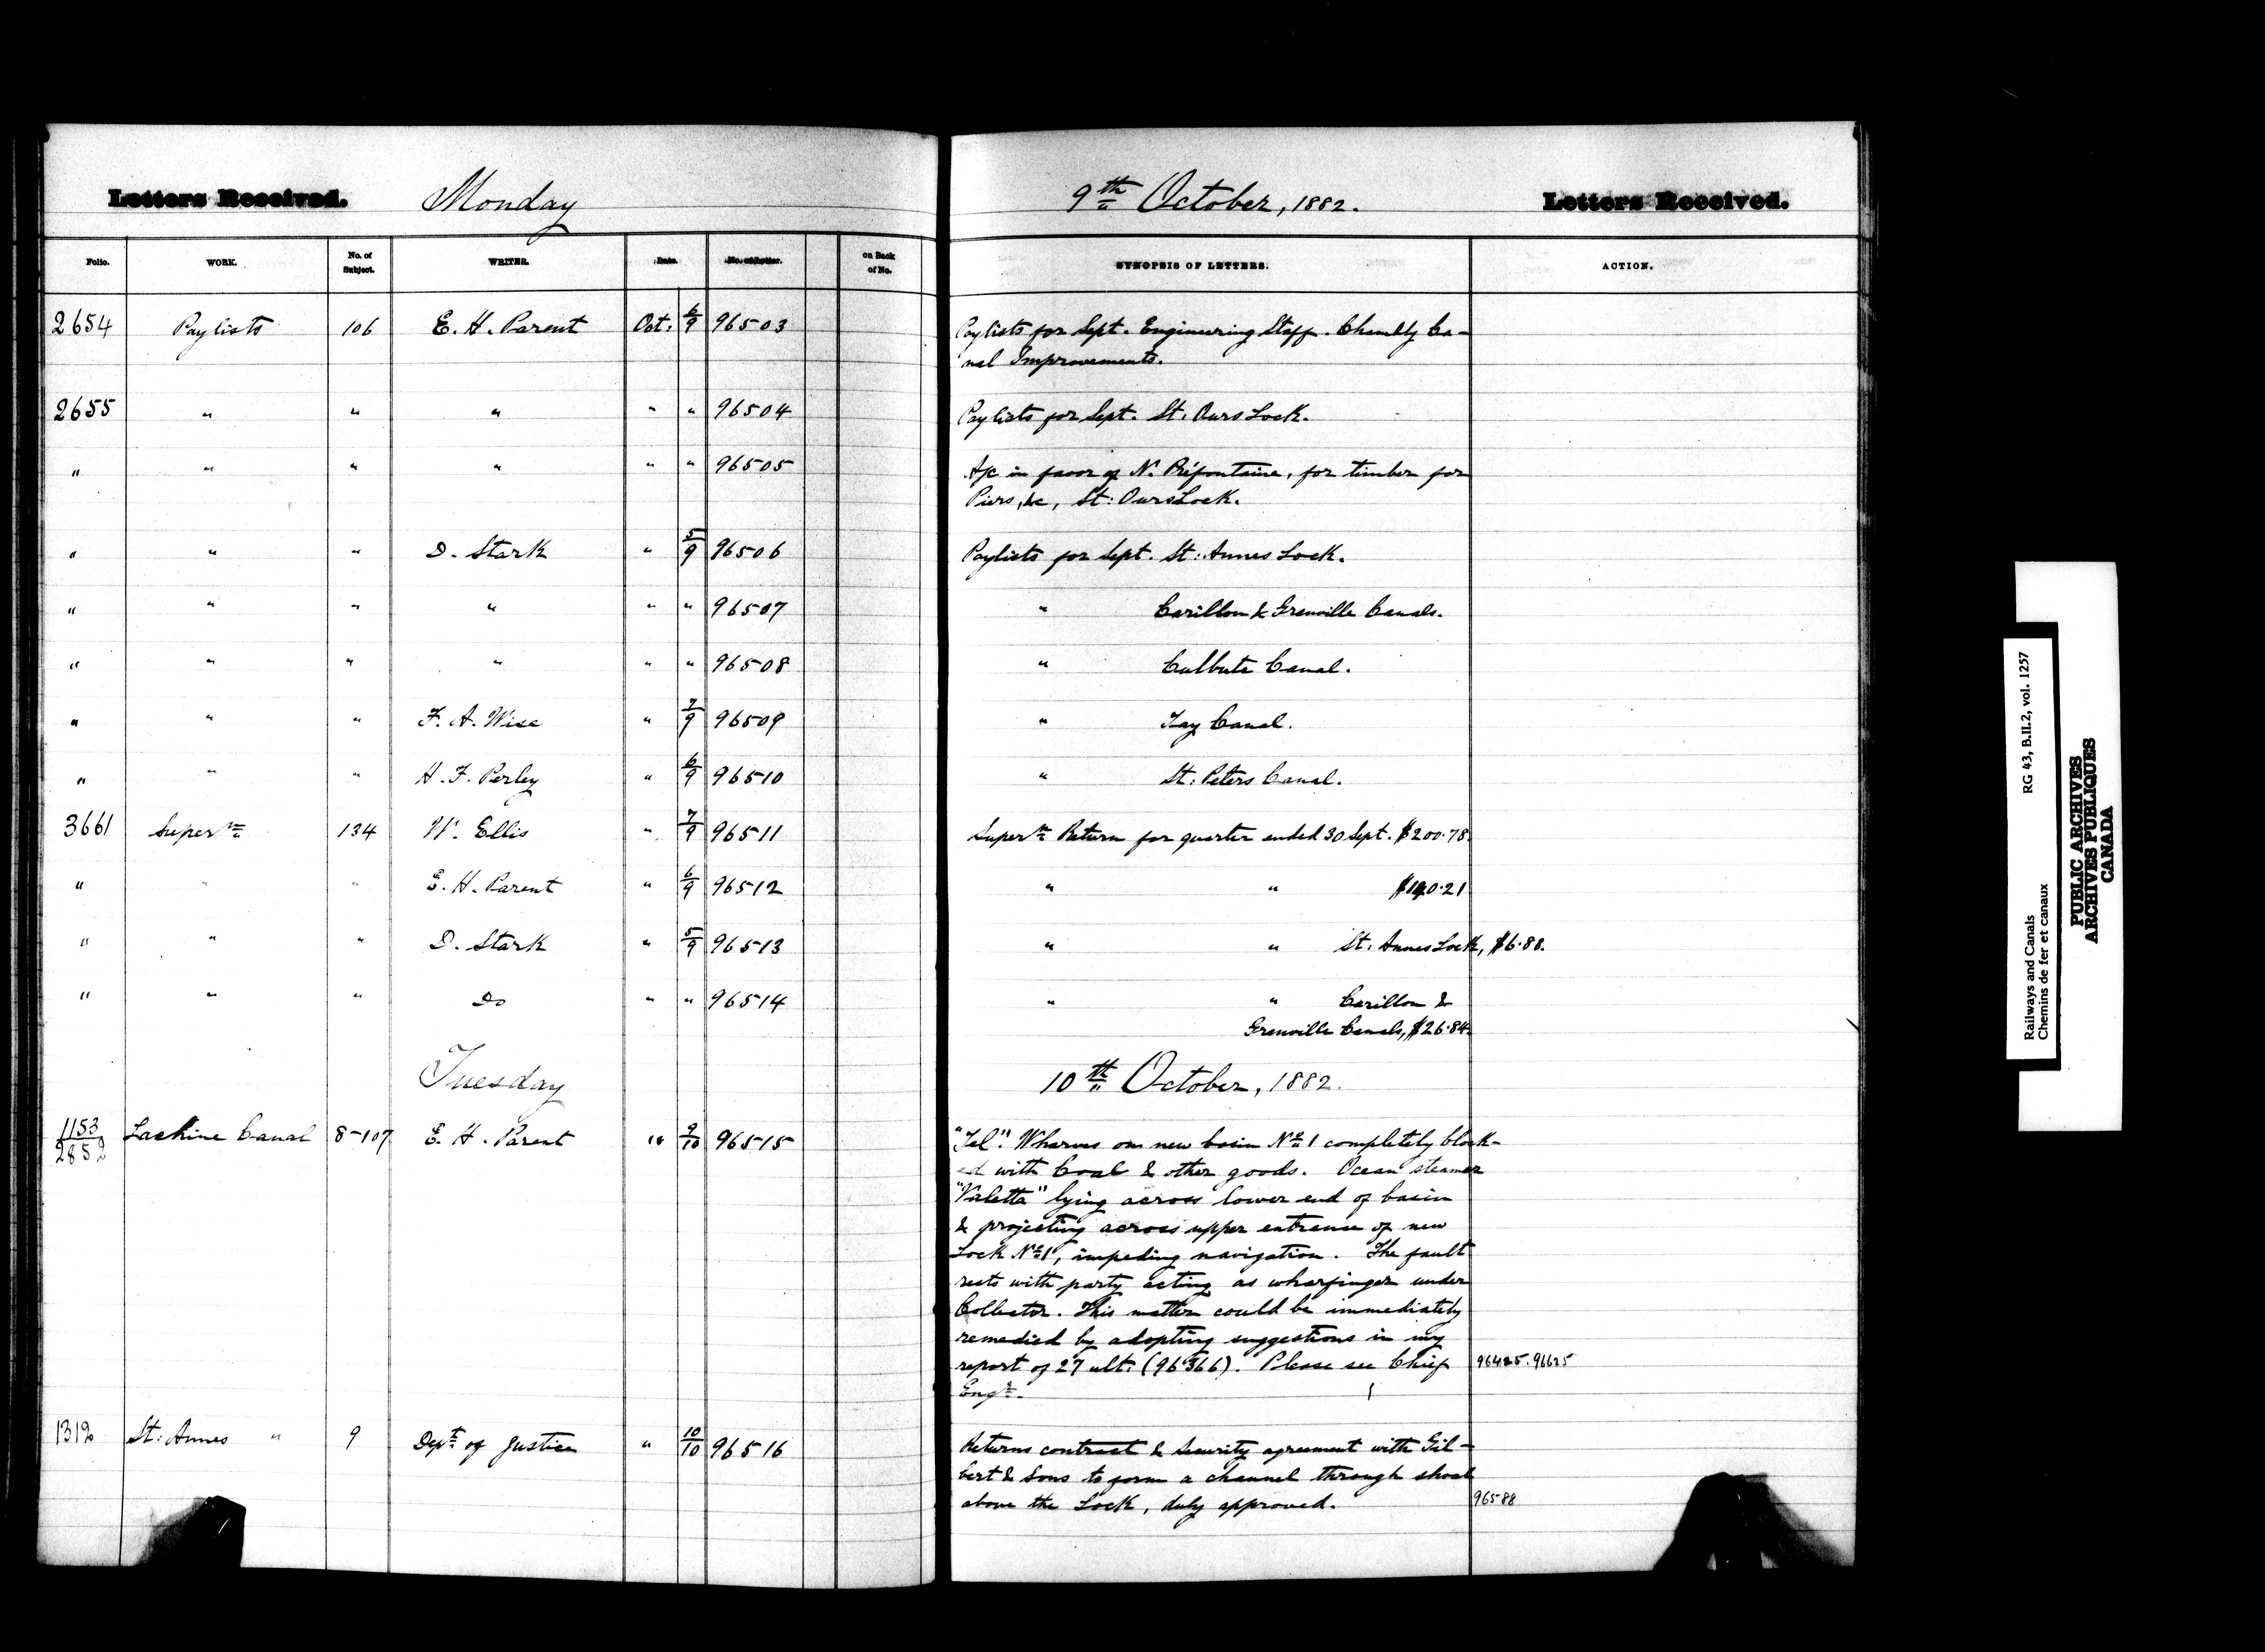 Letters Received. Monday 9th October, 1882. Letters Received.
Folio. WORK. No. of Subject. WRITER. Date. No. of Letter. on Back of No. SYNOPSIS OF LETTERS. ACTION.
2654 Paylists 106 E. H. Parent Oct. 6/9 96503 Paylists for Sept. Engineering Staff. Chambly Ca-
nal Improvements.
2655 " " " " " 96504 Paylists for Sept. St. Ours Lock.
" " " " " " 96505 A/c in favor of N. Préfontaine, for timber for
Piers, &c, St: Ours Lock.
" " " D. Stark " 5/9 96506 Paylists for Sept. St: Annes Lock.
" " " " " " 96507 " Carillon & Grenville Canals.
" " " " " " 96508 " Culbute Canal.
" " " F. A. Wise " 7/9 96509 " Tay Canal.
" " " H. F. Perley " 6/9 96510 " St: Peters Canal.
3661 Superⁿ 134 W. Ellis " 7/9 96511 Superⁿ Return for quarter ended 30 Sept. $200.78
" " " E. H. Parent " 6/9 96512 " " $140.21
" " " D. Stark " 5/9 96513 " " St: Annes Lock, $6.88.
" " " Do " " 96514 " " Carillon &
Grenville Canals, $26.84.
Tuesday 10th October, 1882.
1153/2852 Lachine Canal 8-107 E. H. Parent " 9/10 96515 "Tel". Wharves on new basin No 1 completely block-
ed with Coal & other goods. Ocean steamer
"Valetta" lying across lower end of basin
& projecting across upper entrance of new
Lock No 1, impeding navigation. The fault
rests with party acting as wharfinger under
Collector. This matter could be immediately
remedied by adopting suggestions in my
report of 27 ult: (96366). Please see Chief 96425. 96625
Engr.
1312 St: Annes " 9 Dept of Justice " 10/10 96516 Returns contract & Security agreement with Gil-
bert & Sons to form a channel through shoal
above the Lock, duly approved. 96588
Railways and Canals RG 43, B.II.2, vol. 1257
Chemins de fer et canaux
PUBLIC ARCHIVES
ARCHIVES PUBLIQUES
CANADA